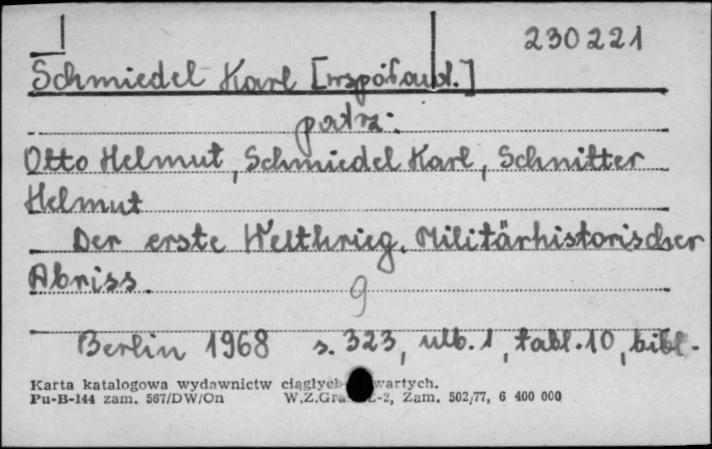 230221
Schmiedel Karl [współaut.]
patrz:
Otto Helmut, Schmiedel Karl, Schnitter
Helmut
Der erste Weltkrieg. Militärhistorischer
Abriss.
9
Berlin 1968 s. 323, ulb. 1, tabl. 10, bibl.
Karta katalogowa wydawnictw ciągłych wartych.
Pu-B-144 zam. 567/DW/On W.Z.Gra -2, Zam. 502/77, 6 400 000